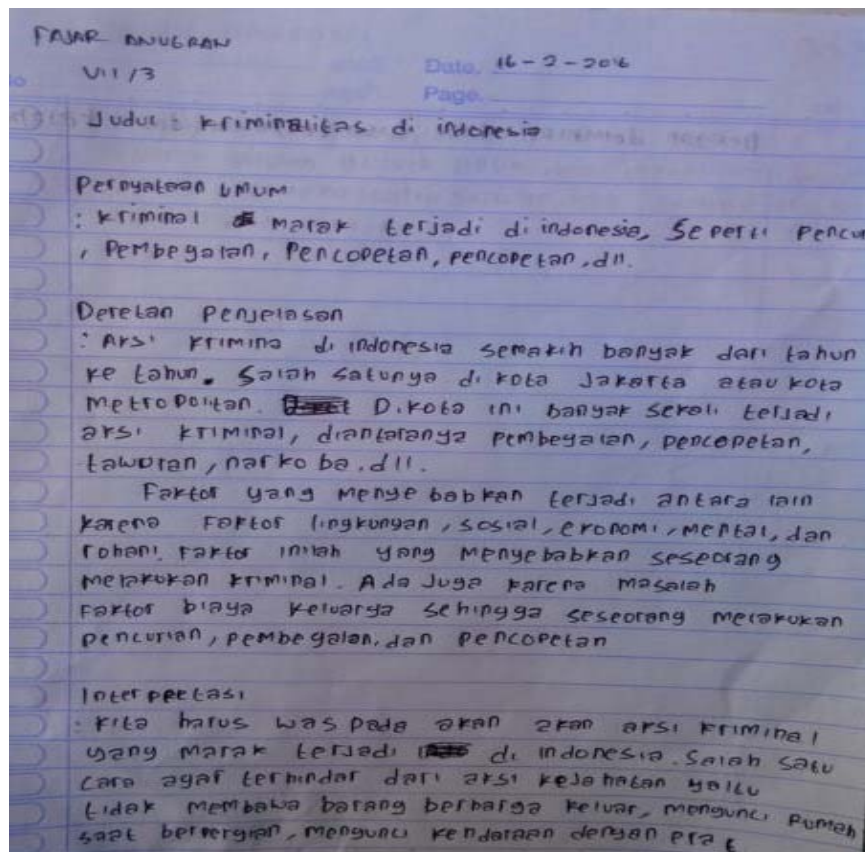 FAJAR ANUGRAH
VII/3
Date. 16-2-2016
Page.
Judul kriminalitas di indonesia
Pernyataan UMUM
: Kriminal marak terjadi di indonesia, Seperti Pencu
, Pembegalan, Pencopetan, pencopetan, dll.
Deretan Penjelasan
: Aksi krimina di indonesia semakin banyak dari tahun
ke tahun. Salah satunya di kota Jakarta atau kota
Metropolitan. Dikota ini banyak sekali terjadi
aksi kriminal, diantaranya pembegalan, pencopetan,
tawuran, narkoba. dll.
Faktor yang menyebabkan terjadi antara lain
karena Faktor lingkungan, sosial, ekonomi, mental, dan
rohani. Faktor inilah yang menyebabkan seseorang
melakukan kriminal. Ada Juga karena masalah
Faktor biaya keluarga sehingga seseorang melakukan
pencurian, pembegalan, dan pencopetan
Interpretasi
: kita harus waspada akan akan aksi kriminal
yang marak terjadi di indonesia. Salah satu
cara agar terhindar dari aksi kejahatan yaitu
tidak membawa barang berharga keluar, mengunci rumah
saat berpergian, mengunci kendaraan dengan erat